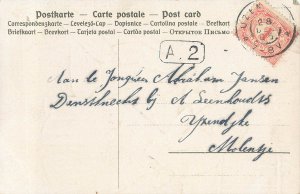 Postkarte – Carte postale – Post card
Correspondenzkarte – Levelező-Lap – Dopisnice – Cartolina postale – Brefkort
Briefkaart – Brevkort – Karta Korespondencyjna – Cartão postal – Открытое Письмо
A. 2
Aan de Jongeheer Abraham Jansen
Dienstknecht bij A Leenhoudts
Yzendyke
Molentje